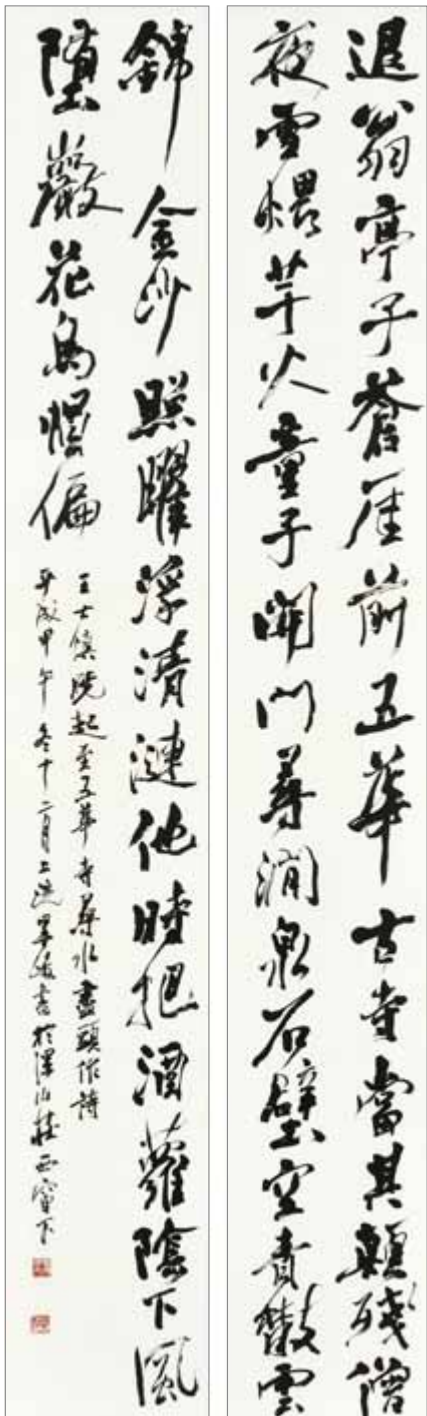 退翁亭子蒼厓前五華古寺當其顛殘僧
夜雪煨芋火童子開門尋澗泉石壁空青雲
錦金沙照曜浮清漣他時把酒蘿陰下風
墮巖花烏幘偏
王士慎晚起至五華寺尋水盡頭作詩
平成甲午冬十二月上浣書於西窗下